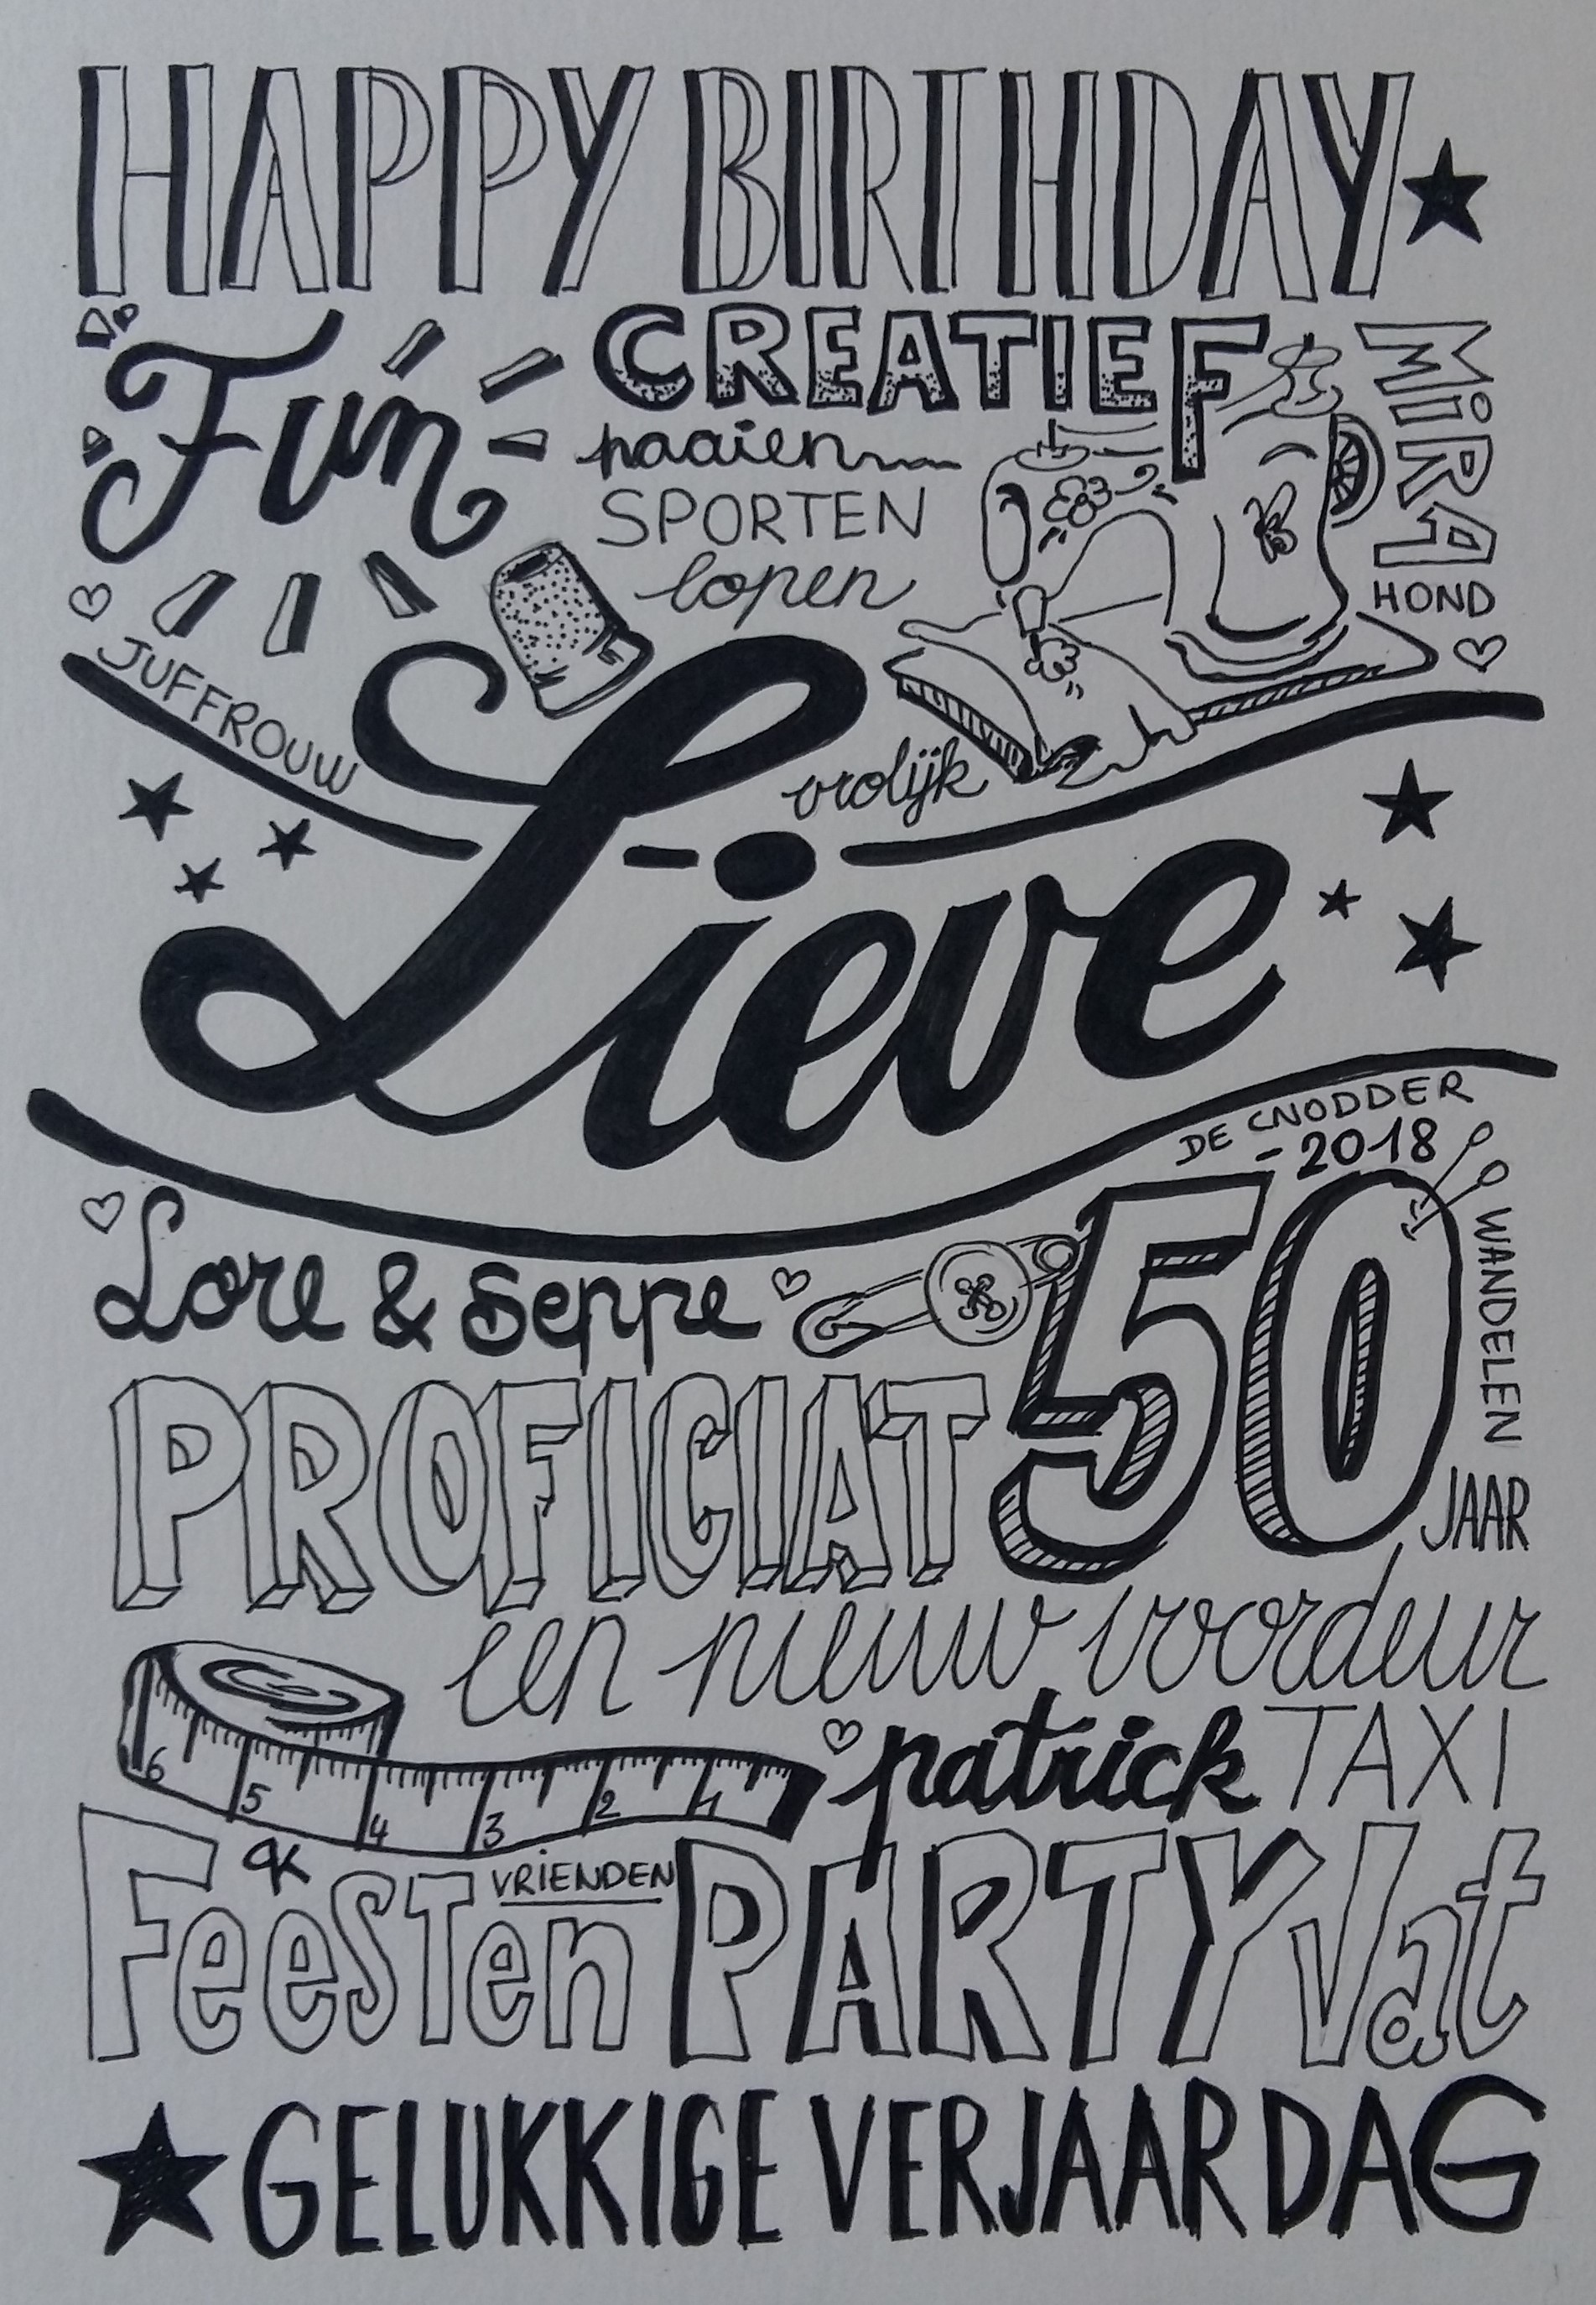 HAPPY BIRTHDAY
Fun
CREATIEF
paaien
SPORTEN
lopen
MiRA
HOND
JUFFROUW
vrolijk
Lieve
DE CNODDER
-2018
Lore & Seppe
50
WANDELEN
JAAR
PROFICIAT
een nieuw voordeur
6 5 4 3 2 1
patrick TAXI
VRIENDEN
FeeSTen PARTY Vat
GELUKKIGE VERJAARDAG